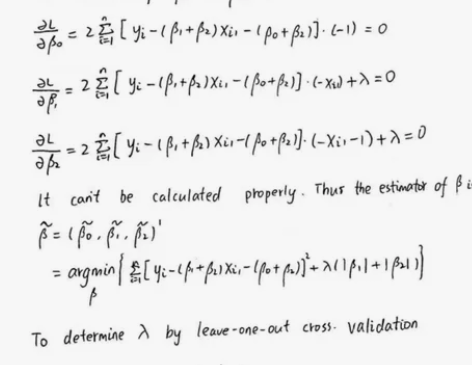 ∂L/∂β₀ = 2 Σᵢ₌₁ⁿ [ yᵢ - (β₁+β₂) xᵢ₁ - (β₀+β₂)] · (-1) = 0
∂L/∂β₁ = 2 Σᵢ₌₁ⁿ [ yᵢ - (β₁+β₂) xᵢ₁ - (β₀+β₂)] · (-xᵢ₁) + λ = 0
∂L/∂β₂ = 2 Σᵢ₌₁ⁿ [ yᵢ - (β₁+β₂) xᵢ₁ - (β₀+β₂)] · (-xᵢ₁ - 1) + λ = 0
It can't be calculated properly. Thus the estimator of β
β̃ = (β̃₀, β̃₁, β̃₂)'
= argmin_β { Σᵢ₌₁ⁿ [yᵢ - (β₁+β₂) xᵢ₁ - (β₀+β₂)]² + λ(|β₁| + |β₂|) }
To determine λ by leave-one-out cross-validation